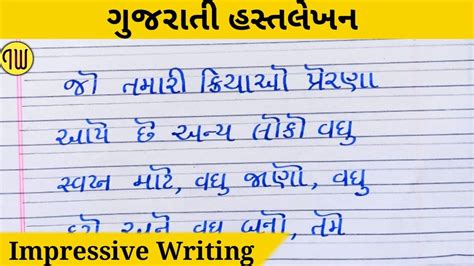 ગુજરાતી હસ્તલેખન
IW
જો તમારી ક્રિયાઓ પ્રેરણા
આપે છે અન્ય લોકો વધુ
સ્વપ્ન માટે, વધુ જાણો, વધુ
કરો અને વધુ બનો, તમે
Impressive Writing